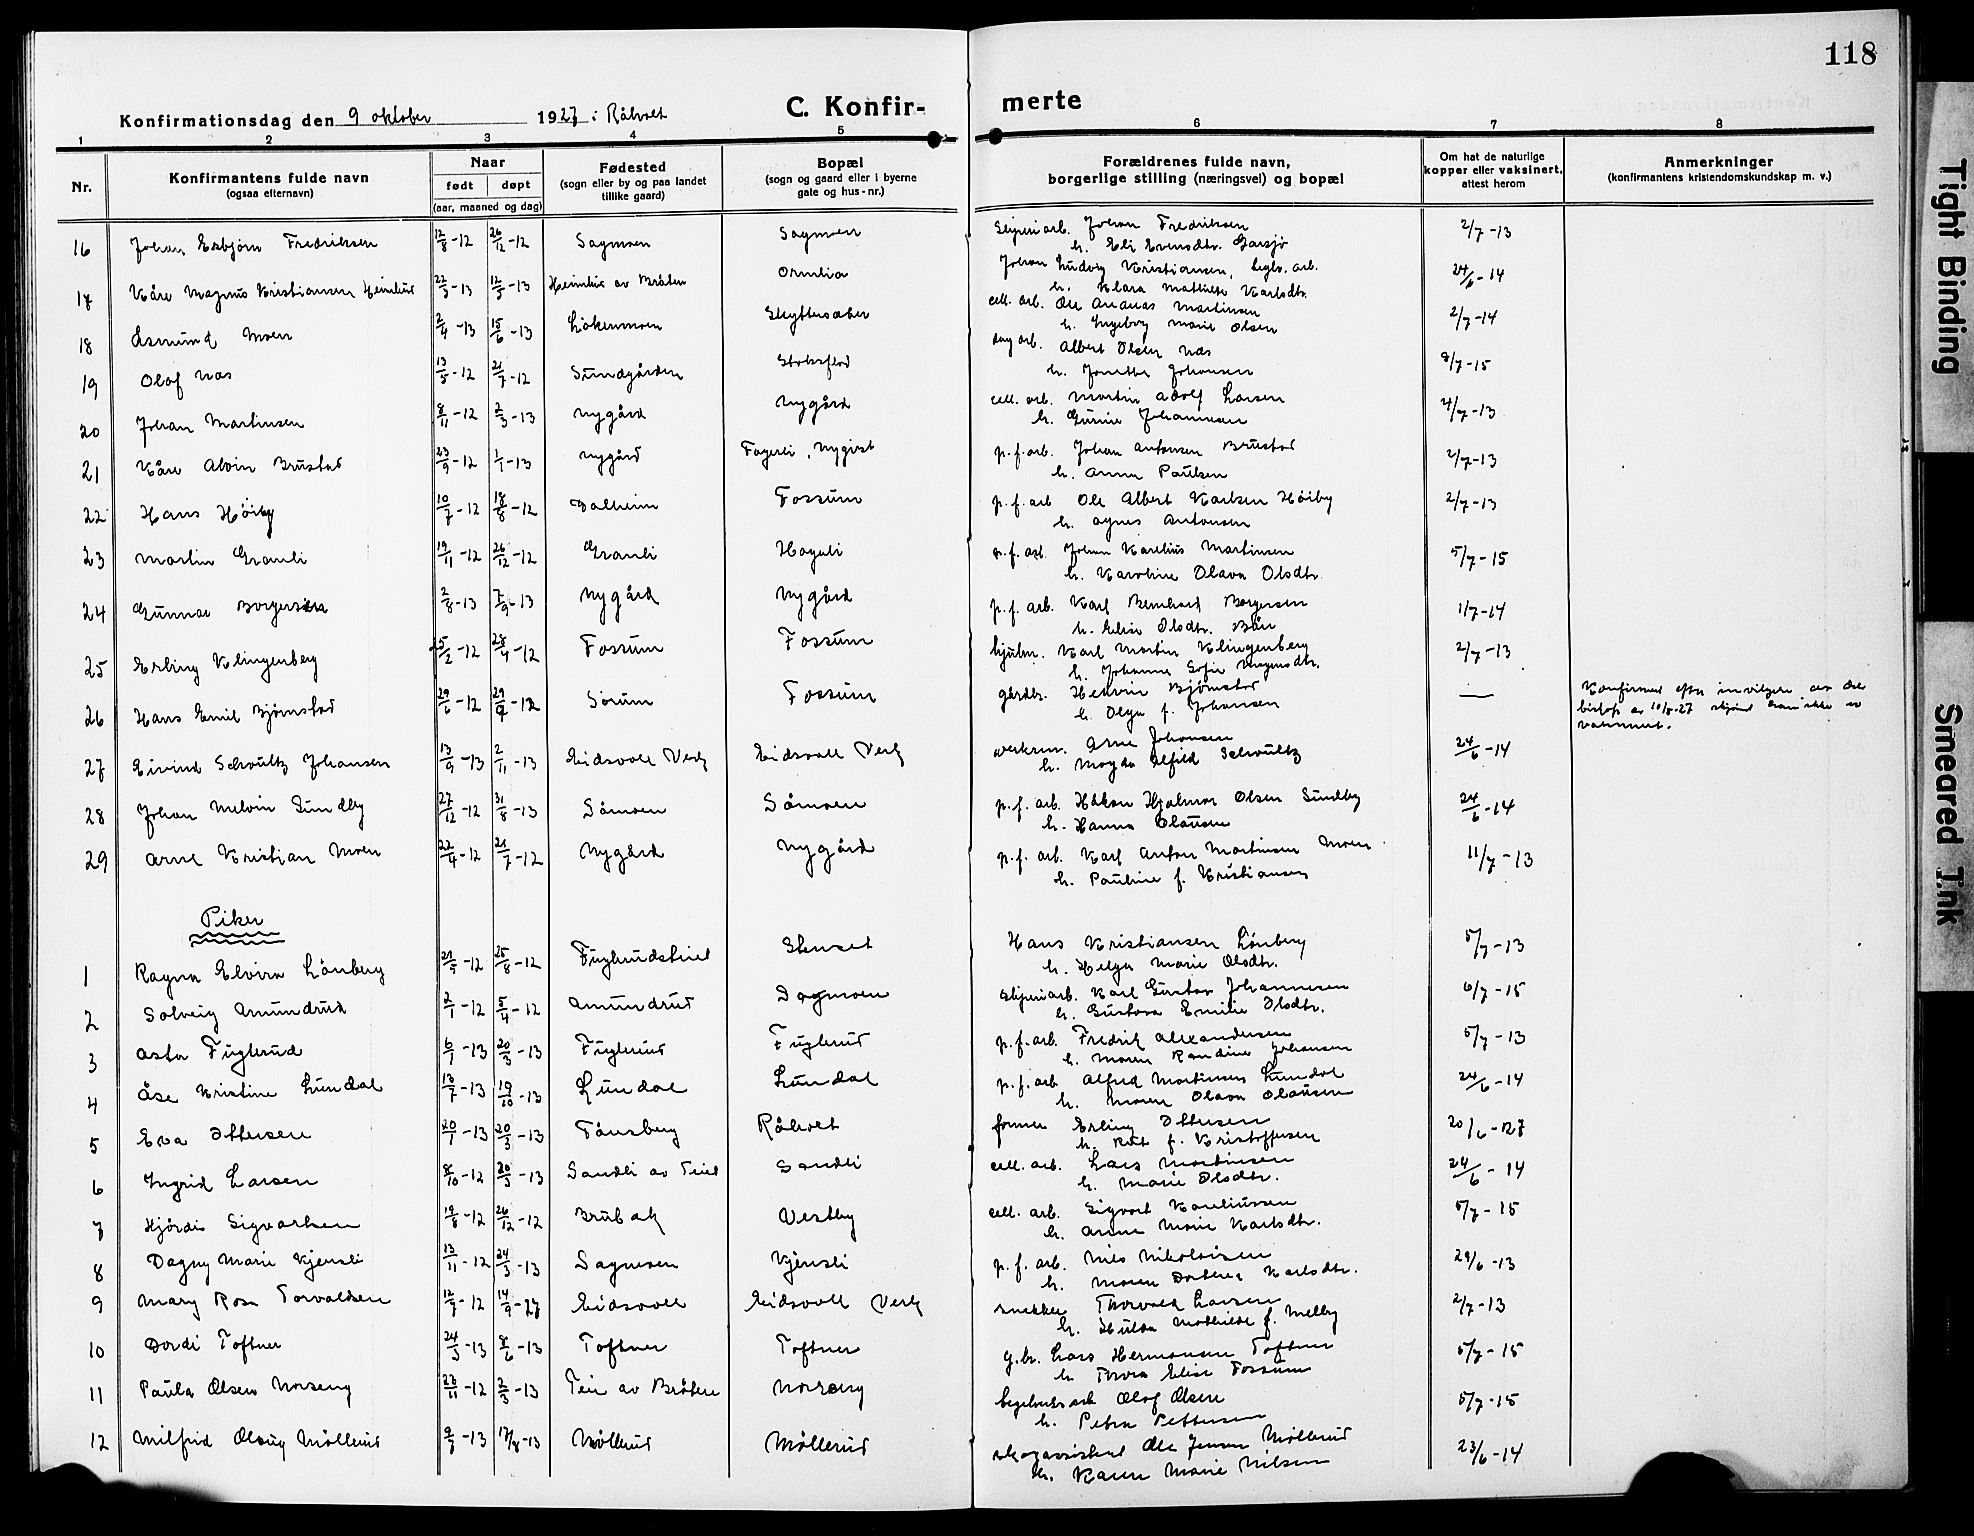 118
Konfirmationsdag den 9 oktober 1927 i Råholt
C. Konfir- merte
1 2 3 4 5 6 7 8
Nr.
Konfirmantens fulde navn
(ogsaa efternavn)
Naar
født døpt
(aar, maaned og dag)
Fødested
(sogn eller by og paa landet
tillike gaard)
Bopæl
(sogn og gaard eller i byerne
gate og hus-nr.)
Forældrenes fulde navn,
borgerlige stilling (næringsvei) og bopæl
Om hat de naturlige
kopper eller vaksinert,
attest herom
Anmerkninger
(konfirmantens kristendomskundskap m. v.)
16 Johan Esbjørn Fredriksen 12/8-12 26/12-12 Sagmoen Sagmoen Sliperiarb. Johan Fredriksen 2/7-13
h. Eli Evensdtr. Garsjø
17 Kåre Magnus Kristiansen Heimlid 22/3-13 12/5-13 Heimlid av Bråten Ornlia Johan Ludvig Kristiansen, teglv. arb. 24/6-14
h. Klara Mathilde Karlsdtr.
18 Asmund Moen 2/4-13 15/6-13 Løkenmoen Skyttersæter cell. arb. Ole Ananas Martinsen 2/7-14
h. Ingeborg Marie Olsen
19 Olaf Næs 13/5-12 21/7-12 Sundgården Stoksflod dag arb. Albert Olsen Næs 8/7-15
h. Jonette Johansen
20 Johan Martinsen 8/11-12 2/3-13 Nygård Nygård cell. arb. Martin Adolf Larsen 4/7-13
h. Gunnie Johannesen
21 Kåre Alvin Brustad 23/9-12 1/1-13 Nygård Fagerli, Nygård p.f.arb. Johan Antonsen Brustad 2/7-13
h. Anna Paulsen
22 Hans Høiby 10/7-12 18/8-12 Dalheim Fossum p.f.arb Ole Albert Karlsen Høiby 2/7-13
h. Agnes Antonsen
23 Martin Granli 19/11-12 26/12-12 Granli Hagali p.f. arb. Johan Karelius Martinsen 5/7-15
h. Karoline Olava Olsdtr.
24 Gunnar Borgersen 2/8-13 7/9-13 Nygård Nygård p.f. arb. Karl Bernhard Borgersen 1/7-14
h. Elise Olsdtr. Bån
25 Erling Klingenberg 25/2-12 28/4-12 Fossum Fossum hjulm. Karl Martin Klingenberg 2/7-13
h. Johanne Sofie Mogensdtr.
26 Hans Emil Bjørnstad 29/6-12 29/9-12 Sørum Fossum gårdbr. Henrin Bjørnstad —
h. Olga f. Johansen
Konfirmert efter innvilgelse av
biskop av 10/8-27 skjønt han ikke er
vaksinert.
27 Eivind Schoultz Johansen 13/9-13 2/11-13 Eidsvoll Verk Eidsvoll Verk verksm. Arne Johansen 24/6-14
h. Magda Alfild Schoultz
28 Johan Melvin Sundby 27/12-12 31/8-13 Såmoen Såmoen p.f. arb. Håkon Hjalmar Olsen Sundby 24/6-14
h. Hanna Olausen
29 Arne Kristian Moen 22/4-12 21/7-12 Nygård Nygård p.f. arb. Karl Anton Martinsen Moen 11/7-13
h. Pauline f. Kristiansen
Piker
1 Ragna Elvira Lönberg 21/5-12 25/8-12 Fuglerudsteiet Stenset Hans Kristiansen Lönberg 5/7-13
h. Helga Marie Olsdtr.
2 Solveig Amundrud 2/1-12 5/4-12 Amundrud Dagmoen Sliperiarb. Karl Gustav Johannesen 6/7-15
h. Gustava Emilie Olsdtr.
3 Asta Fuglerud 6/1-13 20/3-13 Fuglerud Fuglerud p.f.arb. Fredrik Alexandersen 5/7-13
h. Maren Randine Johansen
4 Åse Kristine Lundal 13/7-13 19/10-13 Lundal Lundal p.f. arb. Alfred Martinsen Lundal 24/6-14
h. Maren Olava Olausen
5 Eva Ottersen 20/1-13 20/3-13 Tønsberg Råholt former Erling Ottersen 20/6-27
h. Rut f. Kristoffersen
6 Ingrid Larsen 8/10-12 20/3-13 Sandli av Teiet Sandli cell. arb. Lars Martinsen 24/6-14
h. Marie Olsdtr.
7 Hjördis Sigvartsen 18/8-12 26/12-12 Brubak Vestby cell. arb. Sigvart Kareliussen 5/7-15
h. Anne Marie Karlsdtr.
8 Dagny Marie Kjensli 13/11-12 24/3-13 Sagmoen Kjensli p.f. arb. Nils Nikolaisen 24/6-13
h. Maren Dorthea Karlsdtr.
9 Mary Rosa Torvaldsen 12/7-12 14/9-27 Eidsvoll Eidsvoll Verk snekker Thorvald Larsen 2/7-13
h. Hulda Mathilde f. Melby
10 Dordi Toftner 24/3-13 8/6-13 Toftner Toftner g.br. Lars Hermansen Toftner 5/7-15
h. Thora Elise Fossum
11 Paula Olsen Norseng 23/11-12 2/3-13 Teie av Bråten Norseng Olaf Olsen 5/7-15
h. Petra Pettersen
12 Milfrid Olaug Möllerud 9/7-13 17/8-13 Möllerud Möllerud skogassistent Ole Jensen Möllerud 23/6-14
h. Karen Marie Nilsen
Tight Binding
Smeared Ink